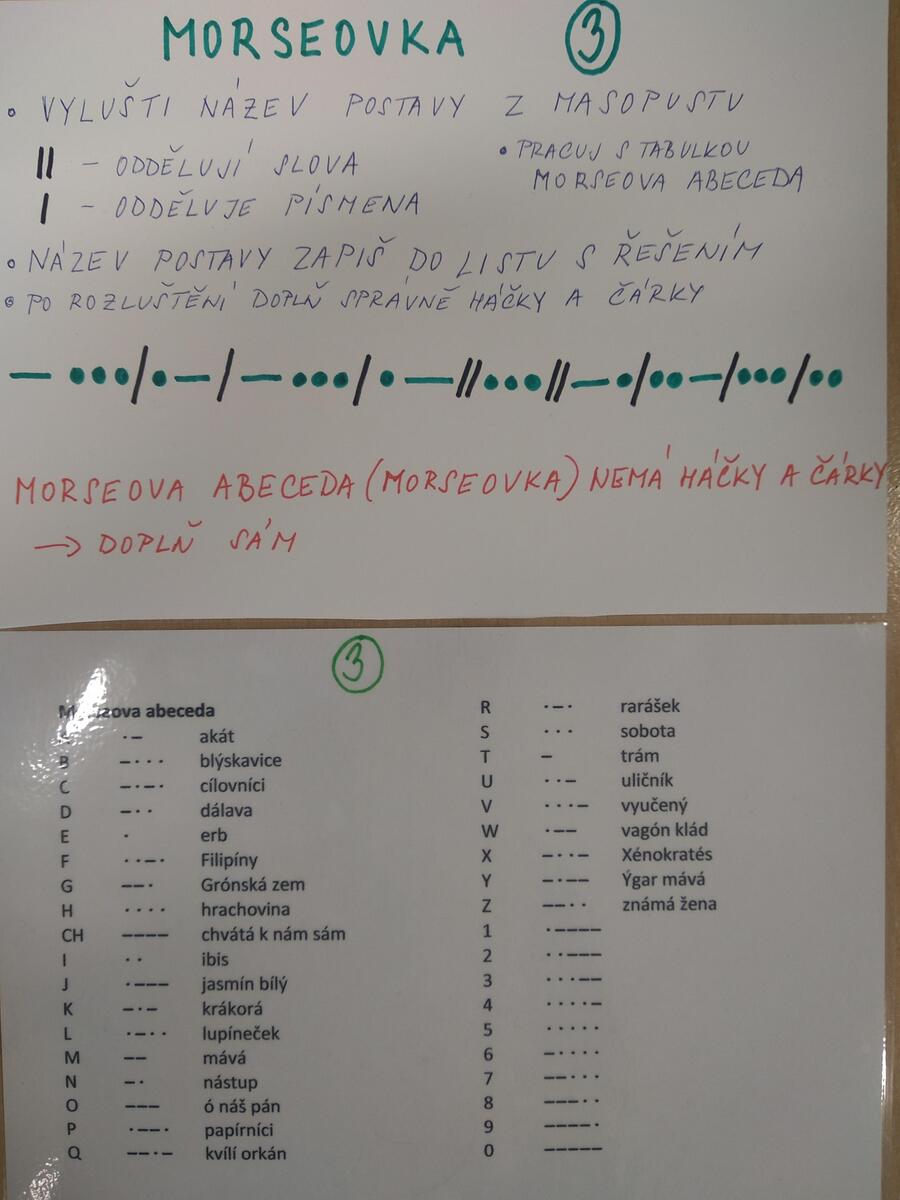 MORSEOVKA 3
• VYLUŠTI NÁZEV POSTAVY Z MASOPUSTU
|| – ODDĚLUJÍ SLOVA
| – ODDĚLUJE PÍSMENA
• PRACUJ S TABULKOU
MORSEOVA ABECEDA
• NÁZEV POSTAVY ZAPIŠ DO LISTU S ŘEŠENÍM
• PO ROZLUŠTĚNÍ DOPLŇ SPRÁVNĚ HÁČKY A ČÁRKY
— •••/•—/—•••/•—//•••//—•/••—/•••/••
MORSEOVA ABECEDA (MORSEOVKA) NEMÁ HÁČKY A ČÁRKY
→ DOPLŇ SÁM
3
abeceda
·– akát
B –··· blýskavice
C –·–· cílovníci
D –·· dálava
E · erb
F ··–· Filipíny
G ––· Grónská zem
H ···· hrachovina
CH –––– chvátá k nám sám
I ·· ibis
J ·––– jasmín bílý
K –·– krákorá
L ·–·· lupíneček
M –– mává
N –· nástup
O ––– ó náš pán
P ·––· papírníci
Q ––·– kvílí orkán
R ·–· rarášek
S ··· sobota
T – trám
U ··– uličník
V ···– vyučený
W ·–– vagón klád
X –··– Xénokratés
Y –·–– Ýgar mává
Z ––·· známá žena
1 ·––––
2 ··–––
3 ···––
4 ····–
5 ·····
6 –····
7 ––···
8 –––··
9 ––––·
0 –––––